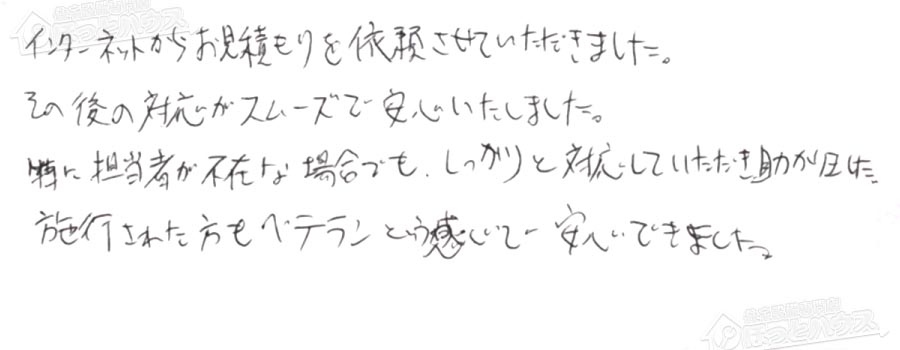 インターネットからお見積もりを依頼させていただきました。
その後の対応がスムーズで安心いたしました。
特に担当者が不在な場合でも、しっかりと対応していただき助かりました
施行された方もベテランという感じで安心できました。
ほっとハウス